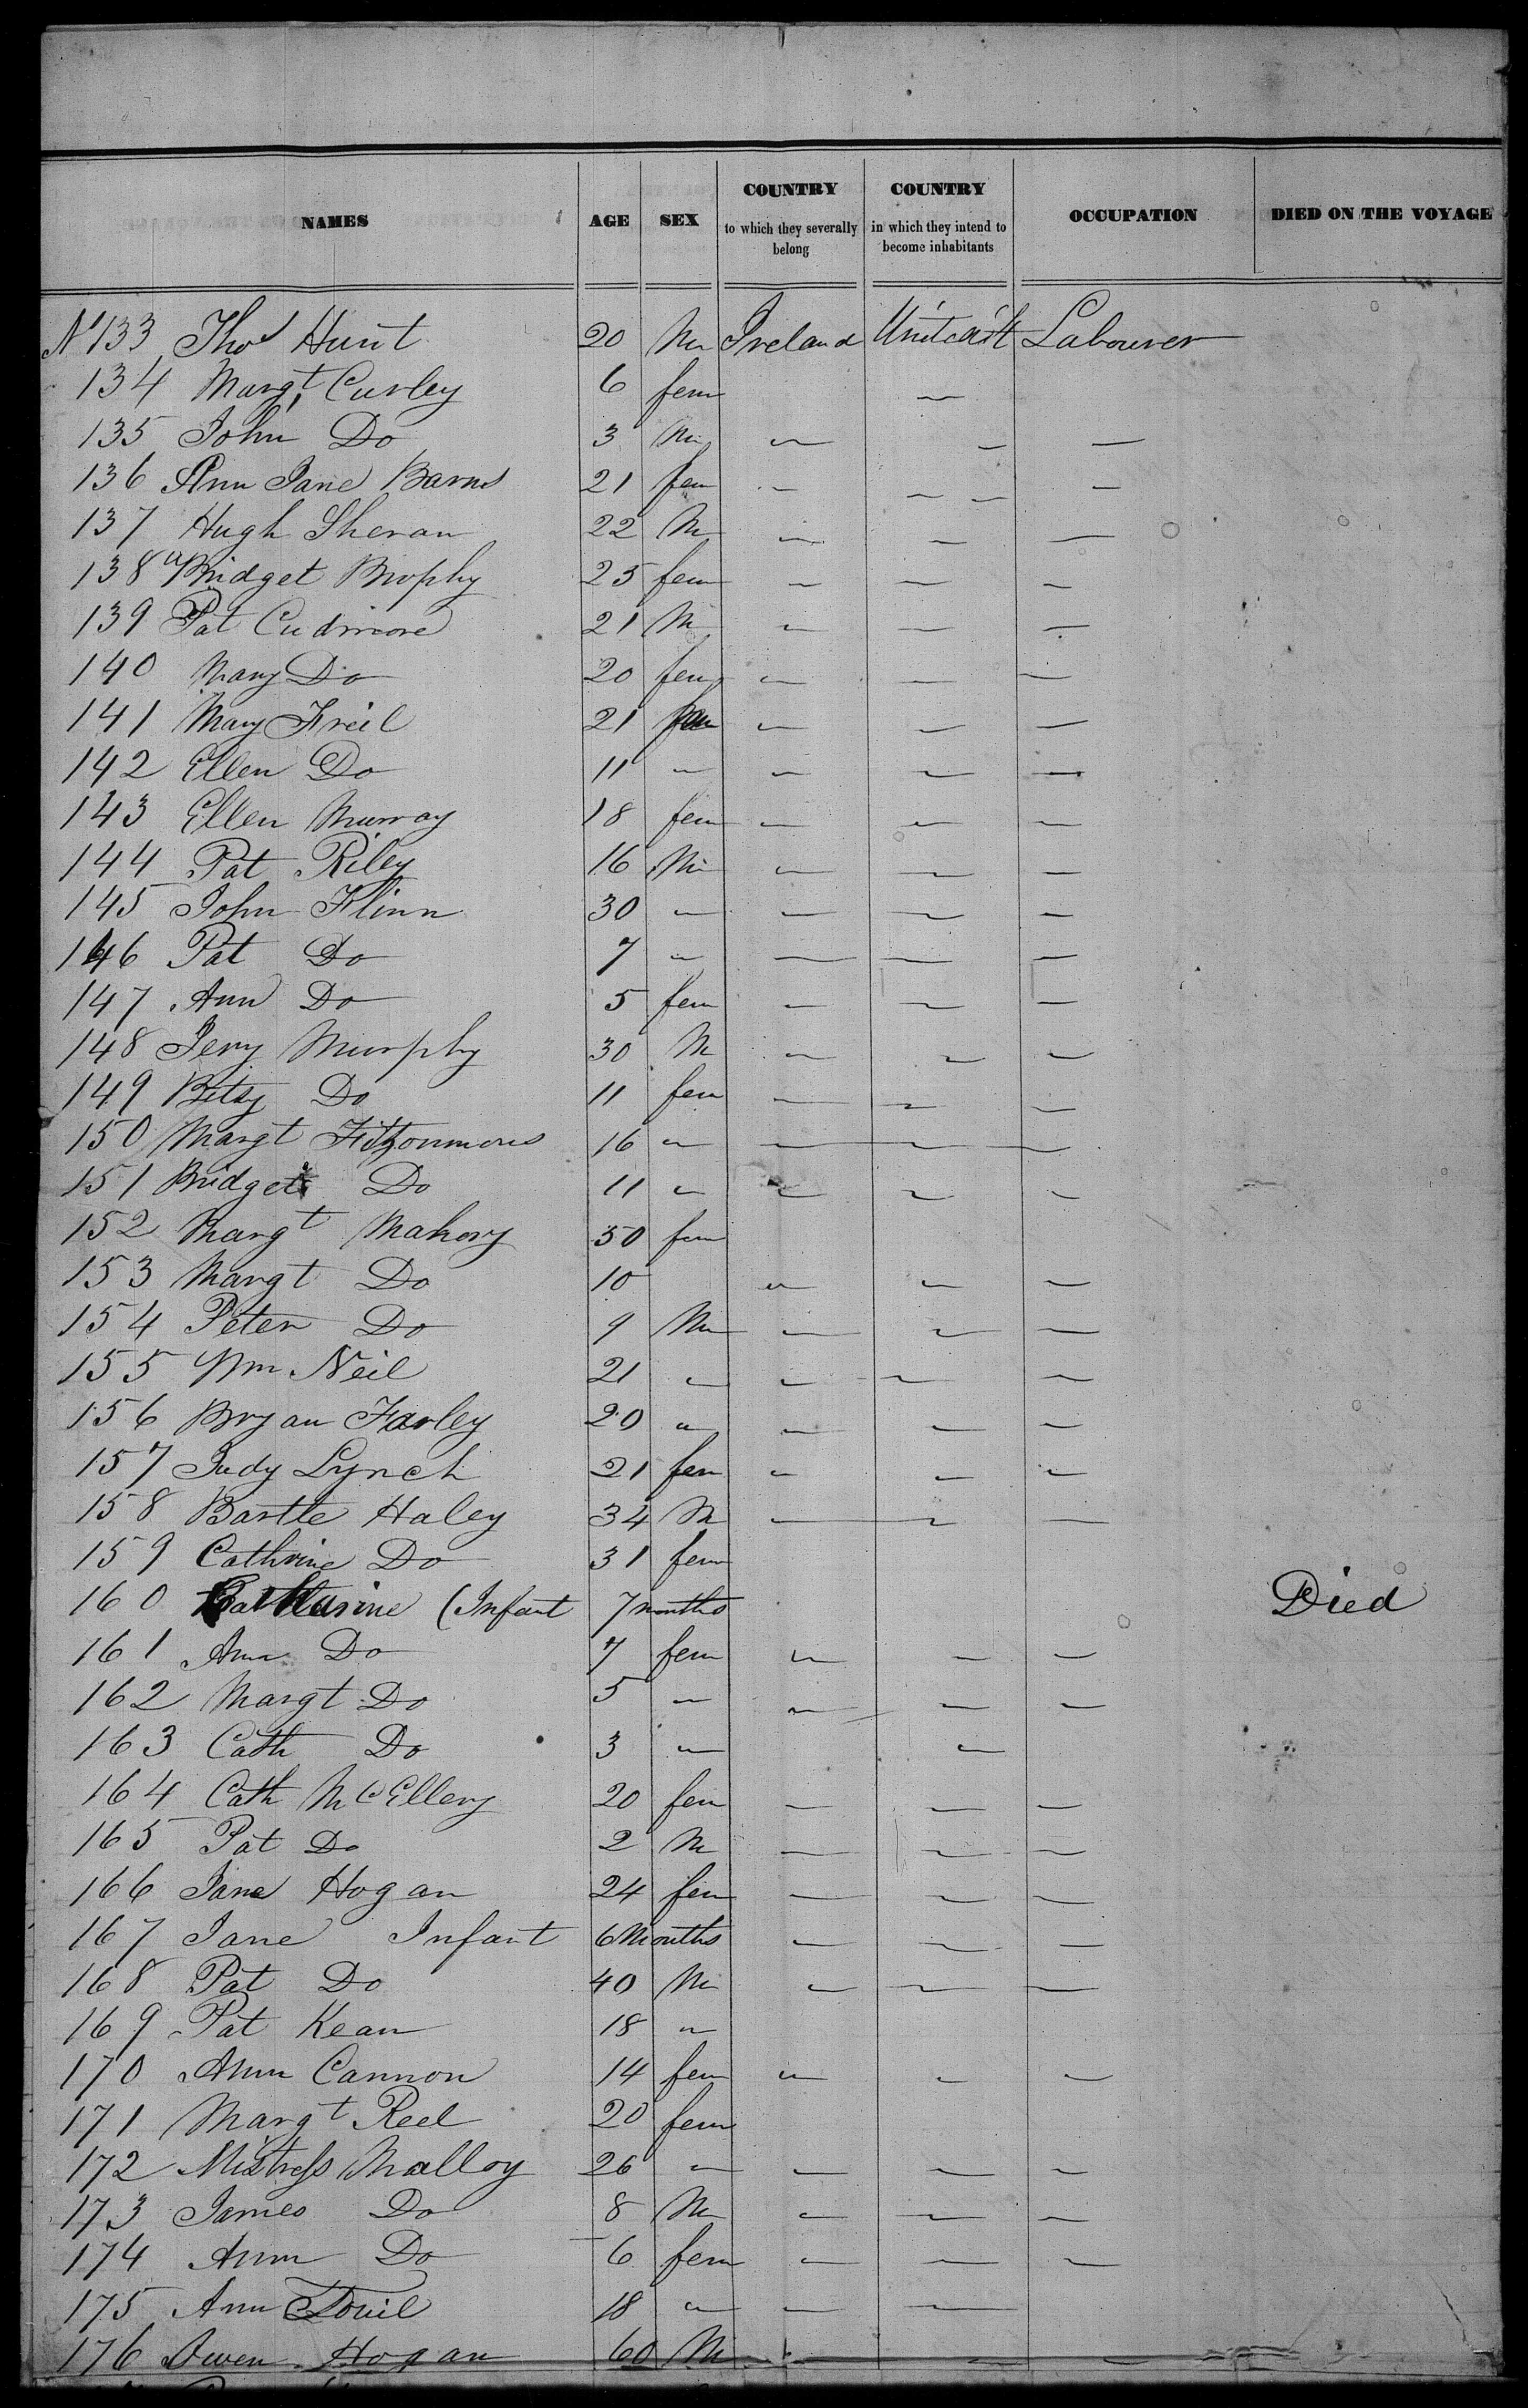 NAMES AGE SEX COUNTRY to which they severally belong COUNTRY in which they intend to become inhabitants OCCUPATION DIED ON THE VOYAGE
No 133 Thos Hunt 20 M Ireland Labourer
134 Margt Curley 6 fem
135 John Do 3 M
136 Ann Jane Barns 21 fem
137 Hugh Sheran 22 M
138 Bridget Brophy 25 fem
139 Pat Cudmore 21 M
140 Mary Do 20 fem
141 Mary Freil 21 fem
142 Ellen Do 11
143 Ellen Murray 18 fem
144 Pat Riley 16 M
145 John Flinn 30
146 Pat Do 7
147 Ann Do 5 fem
148 Jery Murphy 30 M
149 Betsy Do 11 fem
150 Margt 16
151 Bridget Do 11
152 Margt Mahony 50 fem
153 Margt Do 10
154 Peter Do 9 M
155 Wm Neil 21
156 Bryan Farley 20
157 Judy Lynch 21 fem
158 Bartle Haley 34 M
159 Cathrine Do 31 fem
160 Catharine (Infant 7 months Died
161 Ann Do 7 fem
162 Margt Do 5
163 Cath Do 3
164 Cath McEllery 20 fem
165 Pat Do 2 M
166 Jane Hogan 24 fem
167 Jane Infant 6 Months
168 Pat Do 40 M
169 Pat Kean 18
170 Ann Cannon 14 fem
171 Margt Reel 20 fem
172 Mistress Malloy 26
173 James Do 8 M
174 Ann Do 6 fem
175 Ann 18
176 Owen Hogan 60 M